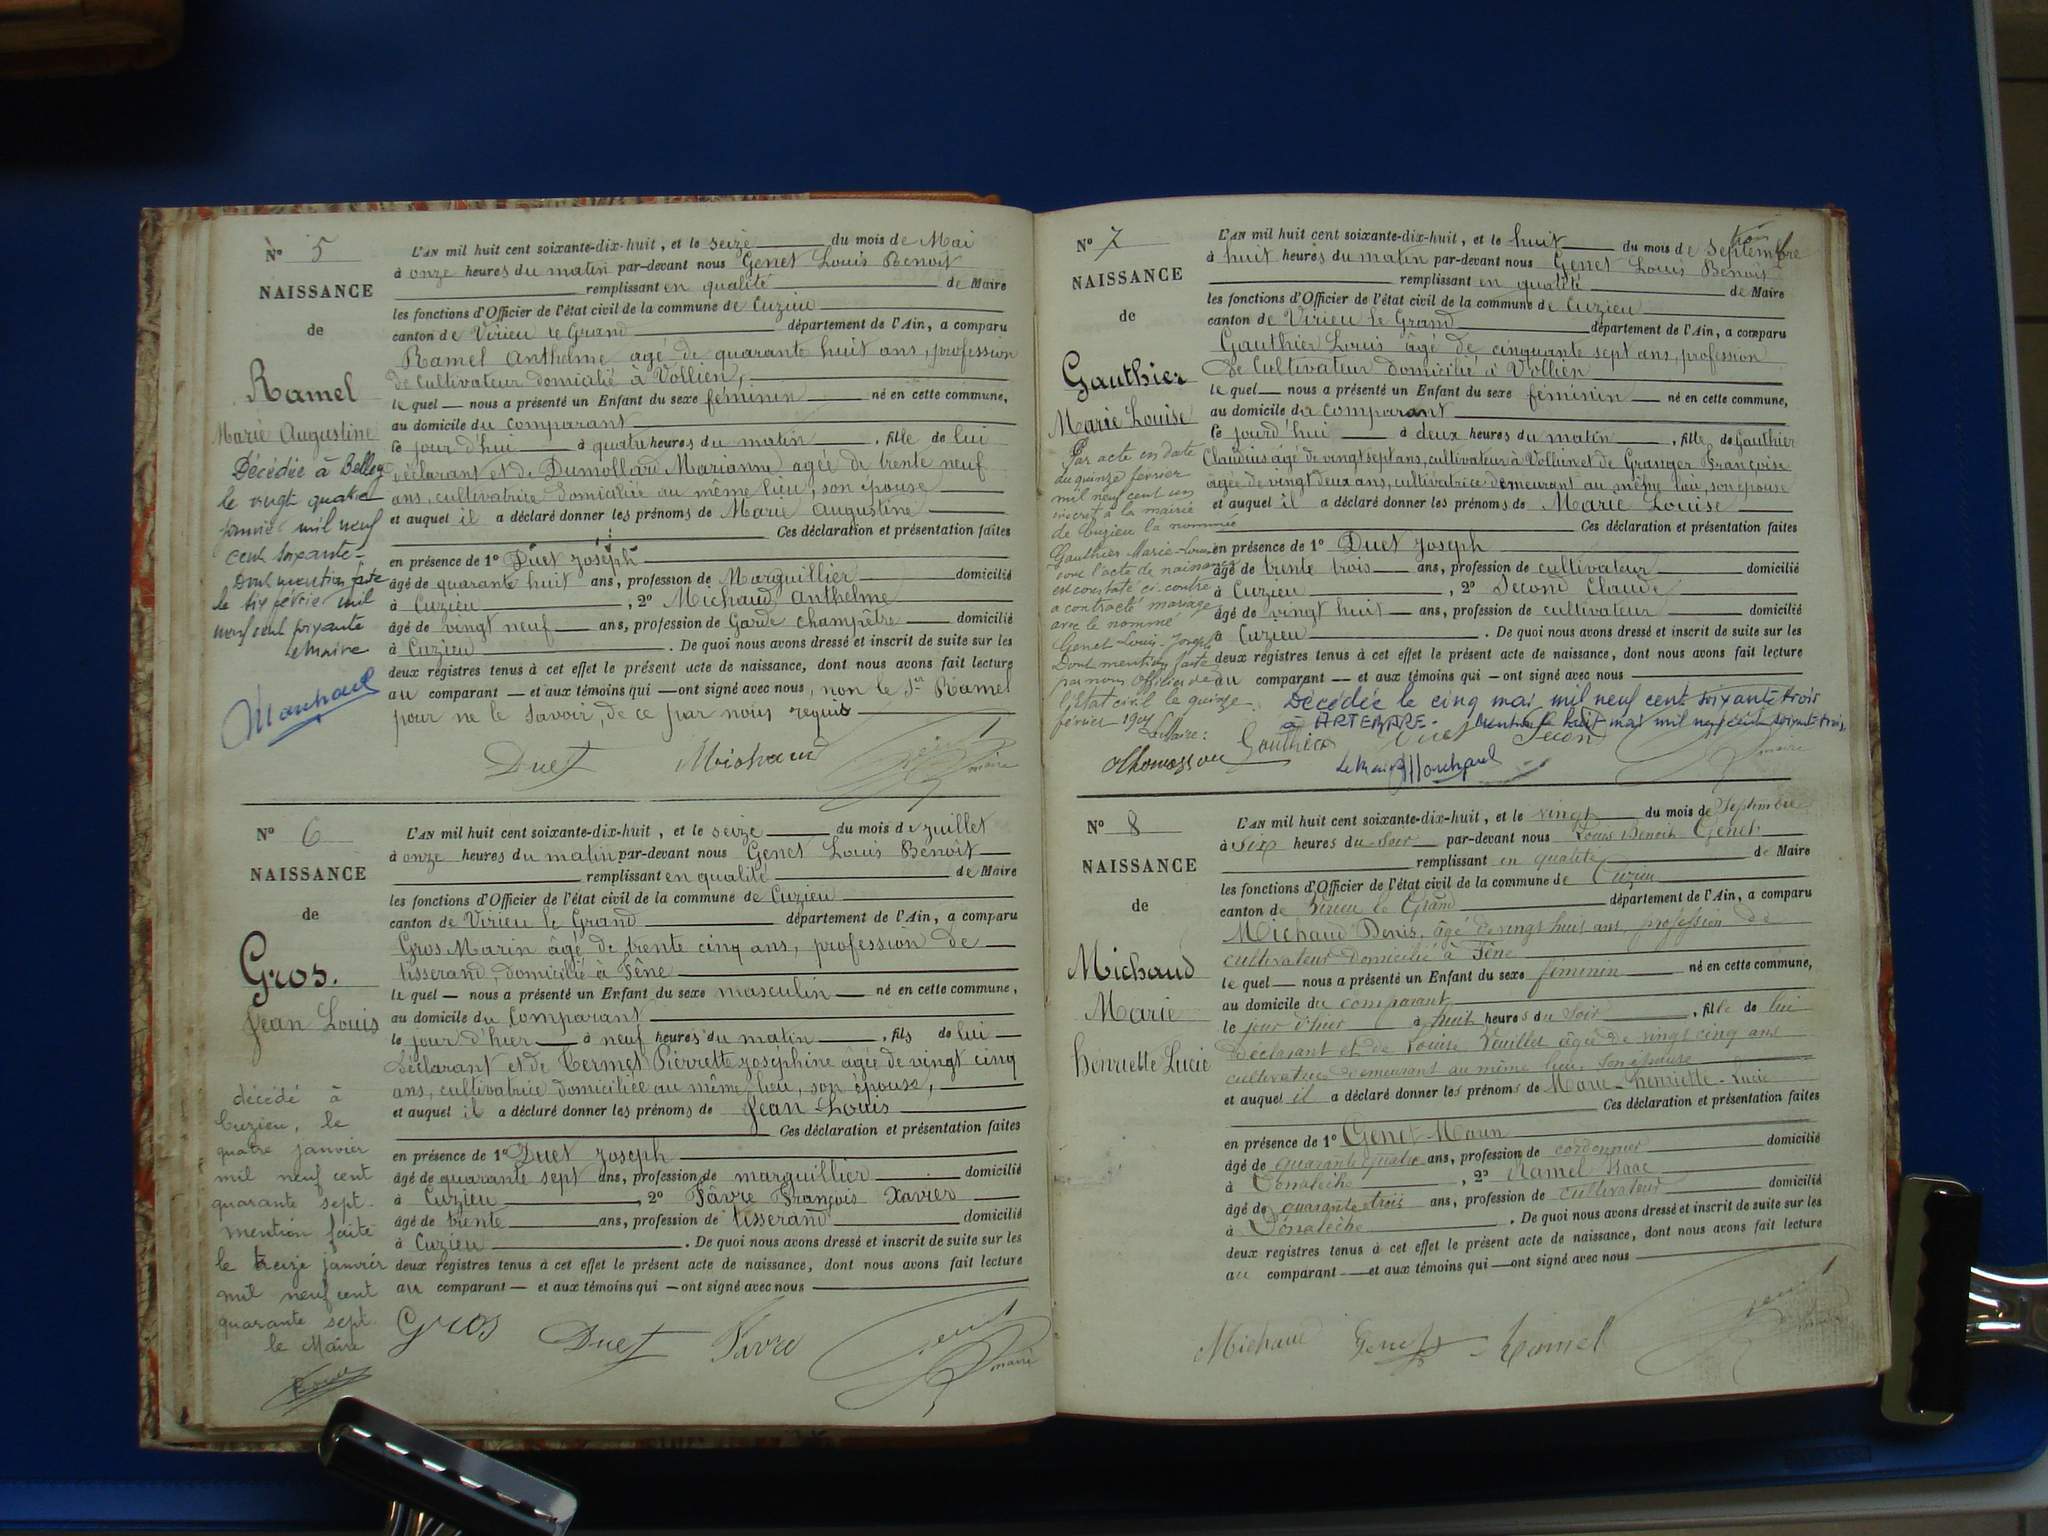 N° 5
NAISSANCE
de
Ramel
Marie Augustine
Décédée à Belley
le vingt quatre
janvier mil neuf
cent soixante-
Dont mention faite
le six février mil
neuf cent soixante
Le Maire
Marchand
L'AN mil huit cent soixante-dix-huit, et le seize du mois de Mai
à onze heures du matin par-devant nous Genet Louis Benoit
remplissant en qualité de Maire
les fonctions d'Officier de l'état civil de la commune de Cuzieu
canton de Virieu le Grand département de l'Ain, a comparu
Ramel Anthelme agé de quarante huit ans, profession
de Cultivateur domicilié à Vollien,
le quel nous a présenté un Enfant du sexe féminin né en cette commune,
au domicile du comparant
le jour d'hui à quatre heures du matin, fille de lui
déclarant et de Dumollard Marianne agée de trente neuf
ans, cultivatrice domiciliée au même lieu, son épouse
et auquel il a déclaré donner les prénoms de Marie Augustine
Ces déclaration et présentation faites
en présence de 1° Duet Joseph
âgé de quarante huit ans, profession de Marguillier domicilié
à Cuzieu, 2° Michaud Anthelme
âgé de vingt neuf ans, profession de Garde champêtre domicilié
à Cuzieu. De quoi nous avons dressé et inscrit de suite sur les
deux registres tenus à cet effet le présent acte de naissance, dont nous avons fait lecture
au comparant — et aux témoins qui — ont signé avec nous, non le Sr Ramel
pour ne le savoir, de ce par nous requis
Duet Michaud Genet maire
N° 6
NAISSANCE
de
Gros.
Jean Louis
décédé à
Cuzieu, le
quatre janvier
mil neuf cent
quarante sept.
mention faite
le treize janvier
mil neuf cent
quarante sept.
le Maire
L'AN mil huit cent soixante-dix-huit, et le seize du mois de juillet
à onze heures du matin par-devant nous Genet Louis Benoît
remplissant en qualité de Maire
les fonctions d'Officier de l'état civil de la commune de Cuzieu
canton de Virieu le Grand département de l'Ain, a comparu
Gros Marin âgé de trente cinq ans, profession de
tisserand, domicilié à Fêne
le quel — nous a présenté un Enfant du sexe masculin — né en cette commune,
au domicile du Comparant
le jour d'hier à neuf heures du matin, fils de lui
déclarant et de Termet Pierrette Joséphine âgée de vingt cinq
ans, cultivatrice domiciliée au même lieu, son épouse,
et auquel il a déclaré donner les prénoms de Jean Louis
Ces déclaration et présentation faites
en présence de 1° Duet Joseph
âgé de quarante sept ans, profession de marguillier domicilié
à Cuzieu, 2° Fâvre François Xavier
âgé de trente ans, profession de tisserand domicilié
à Cuzieu. De quoi nous avons dressé et inscrit de suite sur les
deux registres tenus à cet effet le présent acte de naissance, dont nous avons fait lecture
au comparant — et aux témoins qui — ont signé avec nous
Gros Duet Favre Genet maire
N° 7
NAISSANCE
de
Gauthier
Marie Louise
Par acte en date
du quinze février
mil neuf cent un
inscrit à la mairie
de Cuzieu la nommée
Gauthier Marie-Louise
dont l'acte de naissance
est constaté ci-contre
a contracté mariage
avec le nommé
Genet Louis-Joseph
Dont mention faite
par nous Officier de
l'Etat civil le quinze
février 1901
Le Maire:
L'AN mil huit cent soixante-dix-huit, et le huit du mois de Septembre
à huit heures du matin par-devant nous Genet Louis Benoit
remplissant en qualité de Maire
les fonctions d'Officier de l'état civil de la commune de Cuzieu
canton de Virieu le Grand département de l'Ain, a comparu
Gauthier Louis âgé de cinquante sept ans, profession
de Cultivateur domicilié à Vollien
le quel — nous a présenté un Enfant du sexe féminin — né en cette commune,
au domicile du comparant
le jourd'hui à deux heures du matin, fille de Gauthier
Claudius âgé de vingt sept ans, cultivateur à Vollien et de Granger Françoise
agée de vingt deux ans, cultivatrice demeurant au même lieu, son épouse
et auquel il a déclaré donner les prénoms de Marie Louise
Ces déclaration et présentation faites
en présence de 1° Duet Joseph
âgé de trente trois ans, profession de cultivateur domicilié
à Cuzieu, 2° Second Claude
âgé de vingt huit ans, profession de cultivateur domicilié
à Cuzieu. De quoi nous avons dressé et inscrit de suite sur les
deux registres tenus à cet effet le présent acte de naissance, dont nous avons fait lecture
au comparant — et aux témoins qui — ont signé avec nous
Décédée le cinq mai mil neuf cent soixante trois
à ARTEMARE. Mention le huit mai mil neuf cent soixante trois
Gauthier Duet Second maire
Le Maire Marchand
N° 8
NAISSANCE
de
Michaud
Marie
henriette Lucie
L'AN mil huit cent soixante-dix-huit, et le vingt du mois de Septembre
à Six heures du Soir par-devant nous Louis Benoit Genet
remplissant en qualité de Maire
les fonctions d'Officier de l'état civil de la commune de Cuzieu
canton de Virieu le Grand département de l'Ain, a comparu
Michaud Denis, âgé de vingt huit ans, profession de
cultivateur domicilié à Fêne
le quel — nous a présenté un Enfant du sexe féminin né en cette commune,
au domicile du comparant
le jour d'hier à huit heures du Soir, fille de lui
déclarant et de Louise Vuillet âgée de vingt cinq ans
cultivatrice demeurant au même lieu, son épouse
et auquel il a déclaré donner les prénoms de Marie-henriette-Lucie
Ces déclaration et présentation faites
en présence de 1° Genet Marin
âgé de quarante quatre ans, profession de cordonnier domicilié
à, 2° Ramel Isaac
âgé de quarante trois ans, profession de cultivateur domicilié
à. De quoi nous avons dressé et inscrit de suite sur les
deux registres tenus à cet effet le présent acte de naissance, dont nous avons fait lecture
au comparant — et aux témoins qui — ont signé avec nous
Michaud Genet Ramel